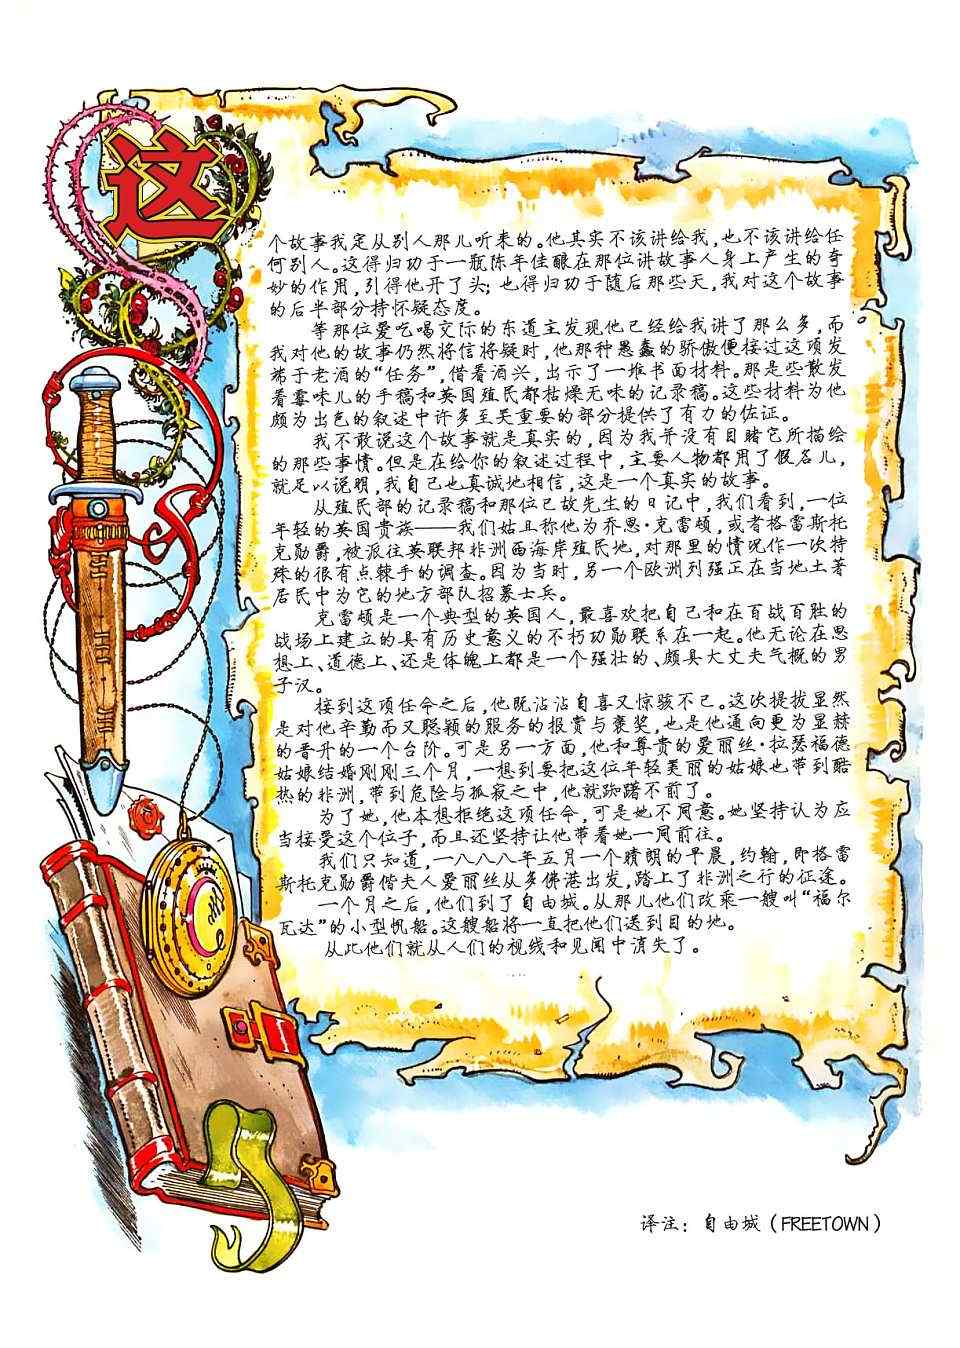 这
个故事我是从别人那儿听来的。他其实不该讲给我，也不该讲给任
何别人。这得归功于一瓶陈年佳酿在那位讲故事人身上产生的奇
妙的作用，引得他开了头；也得归功于随后那些天，我对这个故事
的后半部分持怀疑态度。
等那位爱吃喝交际的东道主发现他已经给我讲了那么多，而
我对他的故事仍然将信将疑时，他那种愚蠢的骄傲便接过这项发
端于老酒的“任务”，借着酒兴，出示了一堆书面材料。那是些散发
着霉味儿的手稿和英国殖民部枯燥无味的记录稿。这些材料为他
颇为出色的叙述中许多至关重要的部分提供了有力的佐证。
我不敢说这个故事就是真实的，因为我并没有目睹它所描绘
的那些事情。但是在给你的叙述过程中，主要人物都用了假名儿，
就足以说明，我自己也真诚地相信，这是一个真实的故事。
从殖民部的记录稿和那位已故先生的日记中，我们看到，一位
年轻的英国贵族——我们姑且称他为乔思·克雷顿，或者格雷斯托
克勋爵，被派往英联邦非洲西海岸殖民地，对那里的情况作一次特
殊的很有点棘手的调查。因为当时，另一个欧洲列强正在当地土著
居民中为它的地方部队招募士兵。
克雷顿是一个典型的英国人，最喜欢把自己和在百战百胜的
战场上建立的具有历史意义的不朽功勋联系在一起。他无论在思
想上、道德上、还是体魄上都是一个强壮的、颇具大丈夫气概的男
子汉。
接到这项任命之后，他既沾沾自喜又惊骇不已。这次提拔显然
是对他辛勤而又聪颖的服务的报赏与褒奖，也是他通向更为显赫
的晋升的一个台阶。可是另一方面，他和尊贵的爱丽丝·拉瑟福德
姑娘结婚刚刚三个月，一想到要把这位年轻美丽的姑娘也带到酷
热的非洲，带到危险与孤寂之中，他就踟躇不前了。
为了她，他本想拒绝这项任命，可是她不同意。她坚持认为应
当接受这个位子，而且还坚持让他带着她一同前往。
我们只知道，一八八八年五月一个晴朗的早晨，约翰，即格雷
斯托克勋爵偕夫人爱丽丝从多佛港出发，踏上了非洲之行的征途。
一个月之后，他们到了自由城。从那儿他们改乘一艘叫“福尔
瓦达”的小型帆船。这艘船将一直把他们送到目的地。
从此他们就从人们的视线和见闻中消失了。
译注：自由城（FREETOWN）